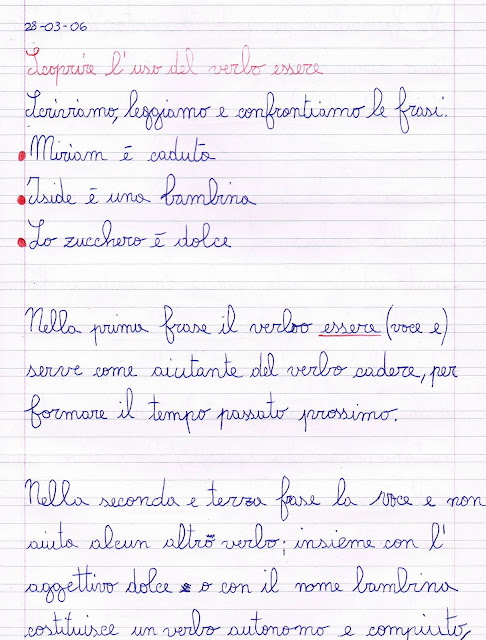 28-03-06
Scoprire l'uso del verbo essere
Scriviamo, leggiamo e confrontiamo le frasi.
Miriam è caduta
Iside è una bambina
Lo zucchero è dolce
Nella prima frase il verbo essere (voce e)
serve come aiutante del verbo cadere, per
formare il tempo passato prossimo.
Nella seconda e terza frase la voce e non
aiuta alcun altro verbo; insieme con l'
aggettivo dolce o con il nome bambina
costituisce un verbo autonomo e compiuto,